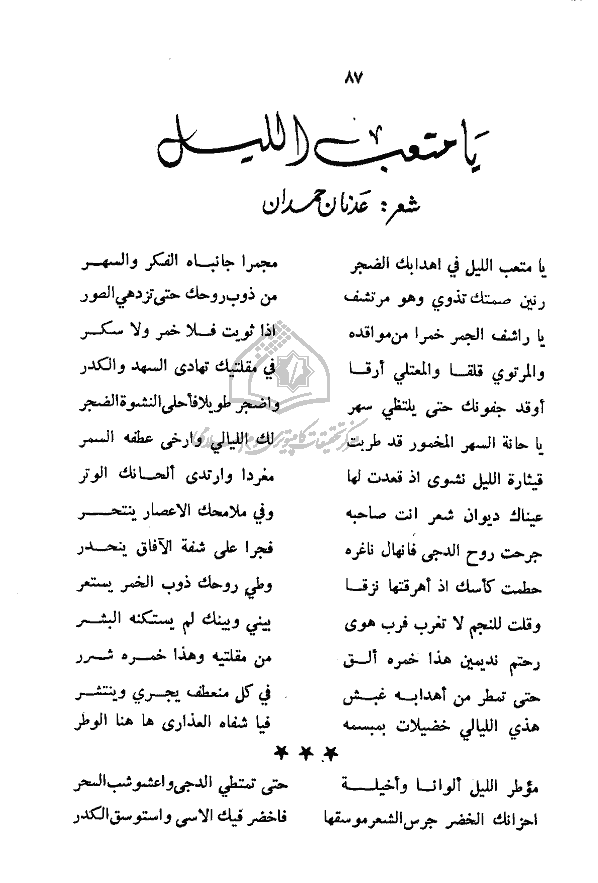 ٨٧
يا متعب الليل
شعر : عدنان حمدان
يا متعب الليل في اهدابك الضجر مجمرا جانباه الفكر والسهر
رنين صمتك تذوي وهو مرتشف من ذوب روحك حتى تزدهي الصور
يا راشف الجمر خمرا من مواقده اذا ثويت فلا خمر ولا سكر
والمرتوي قلقا والمعتلي أرقا في مقلتيك تهادى السهد والكدر
أوقد جفونك حتى يلتظي سهر واضجر طويلا فأحلى النشوة الضجر
يا حانة السهر المخمور قد طربت لك الليالي وارخى عطفه السمر
قيثارة الليل نشوى اذ قعدت لها مغردا وارتدى ألحانك الوتر
عيناك ديوان شعر انت صاحبه وفي ملامحك الاعصار ينتحر
جرحت روح الدجى فانهال ناغره فجرا على شفة الآفاق ينحدر
حطمت كأسك اذ أهرقتها نزقا وطي روحك ذوب الخمر يستعر
وقلت للنجم لا تغرب فرب هوى بيني وبينك لم يستكنه البشر
رحتم نديمين هذا خمره ألق من مقلتيه وهذا خمره شرر
حتى تمطر من أهدابه غبش في كل منعطف يجري وينتشر
هذي الليالي خضيلات بمبسمه فيا شفاه العذارى ها هنا الوطر
★ ★ ★
مؤطر الليل ألوانا وأخيلة حتى تمتطي الدجى واعشوشب السحر
احزانك الخضر جرس الشعر موسقها فاخضر فيك الاسى واستوسق الكدر